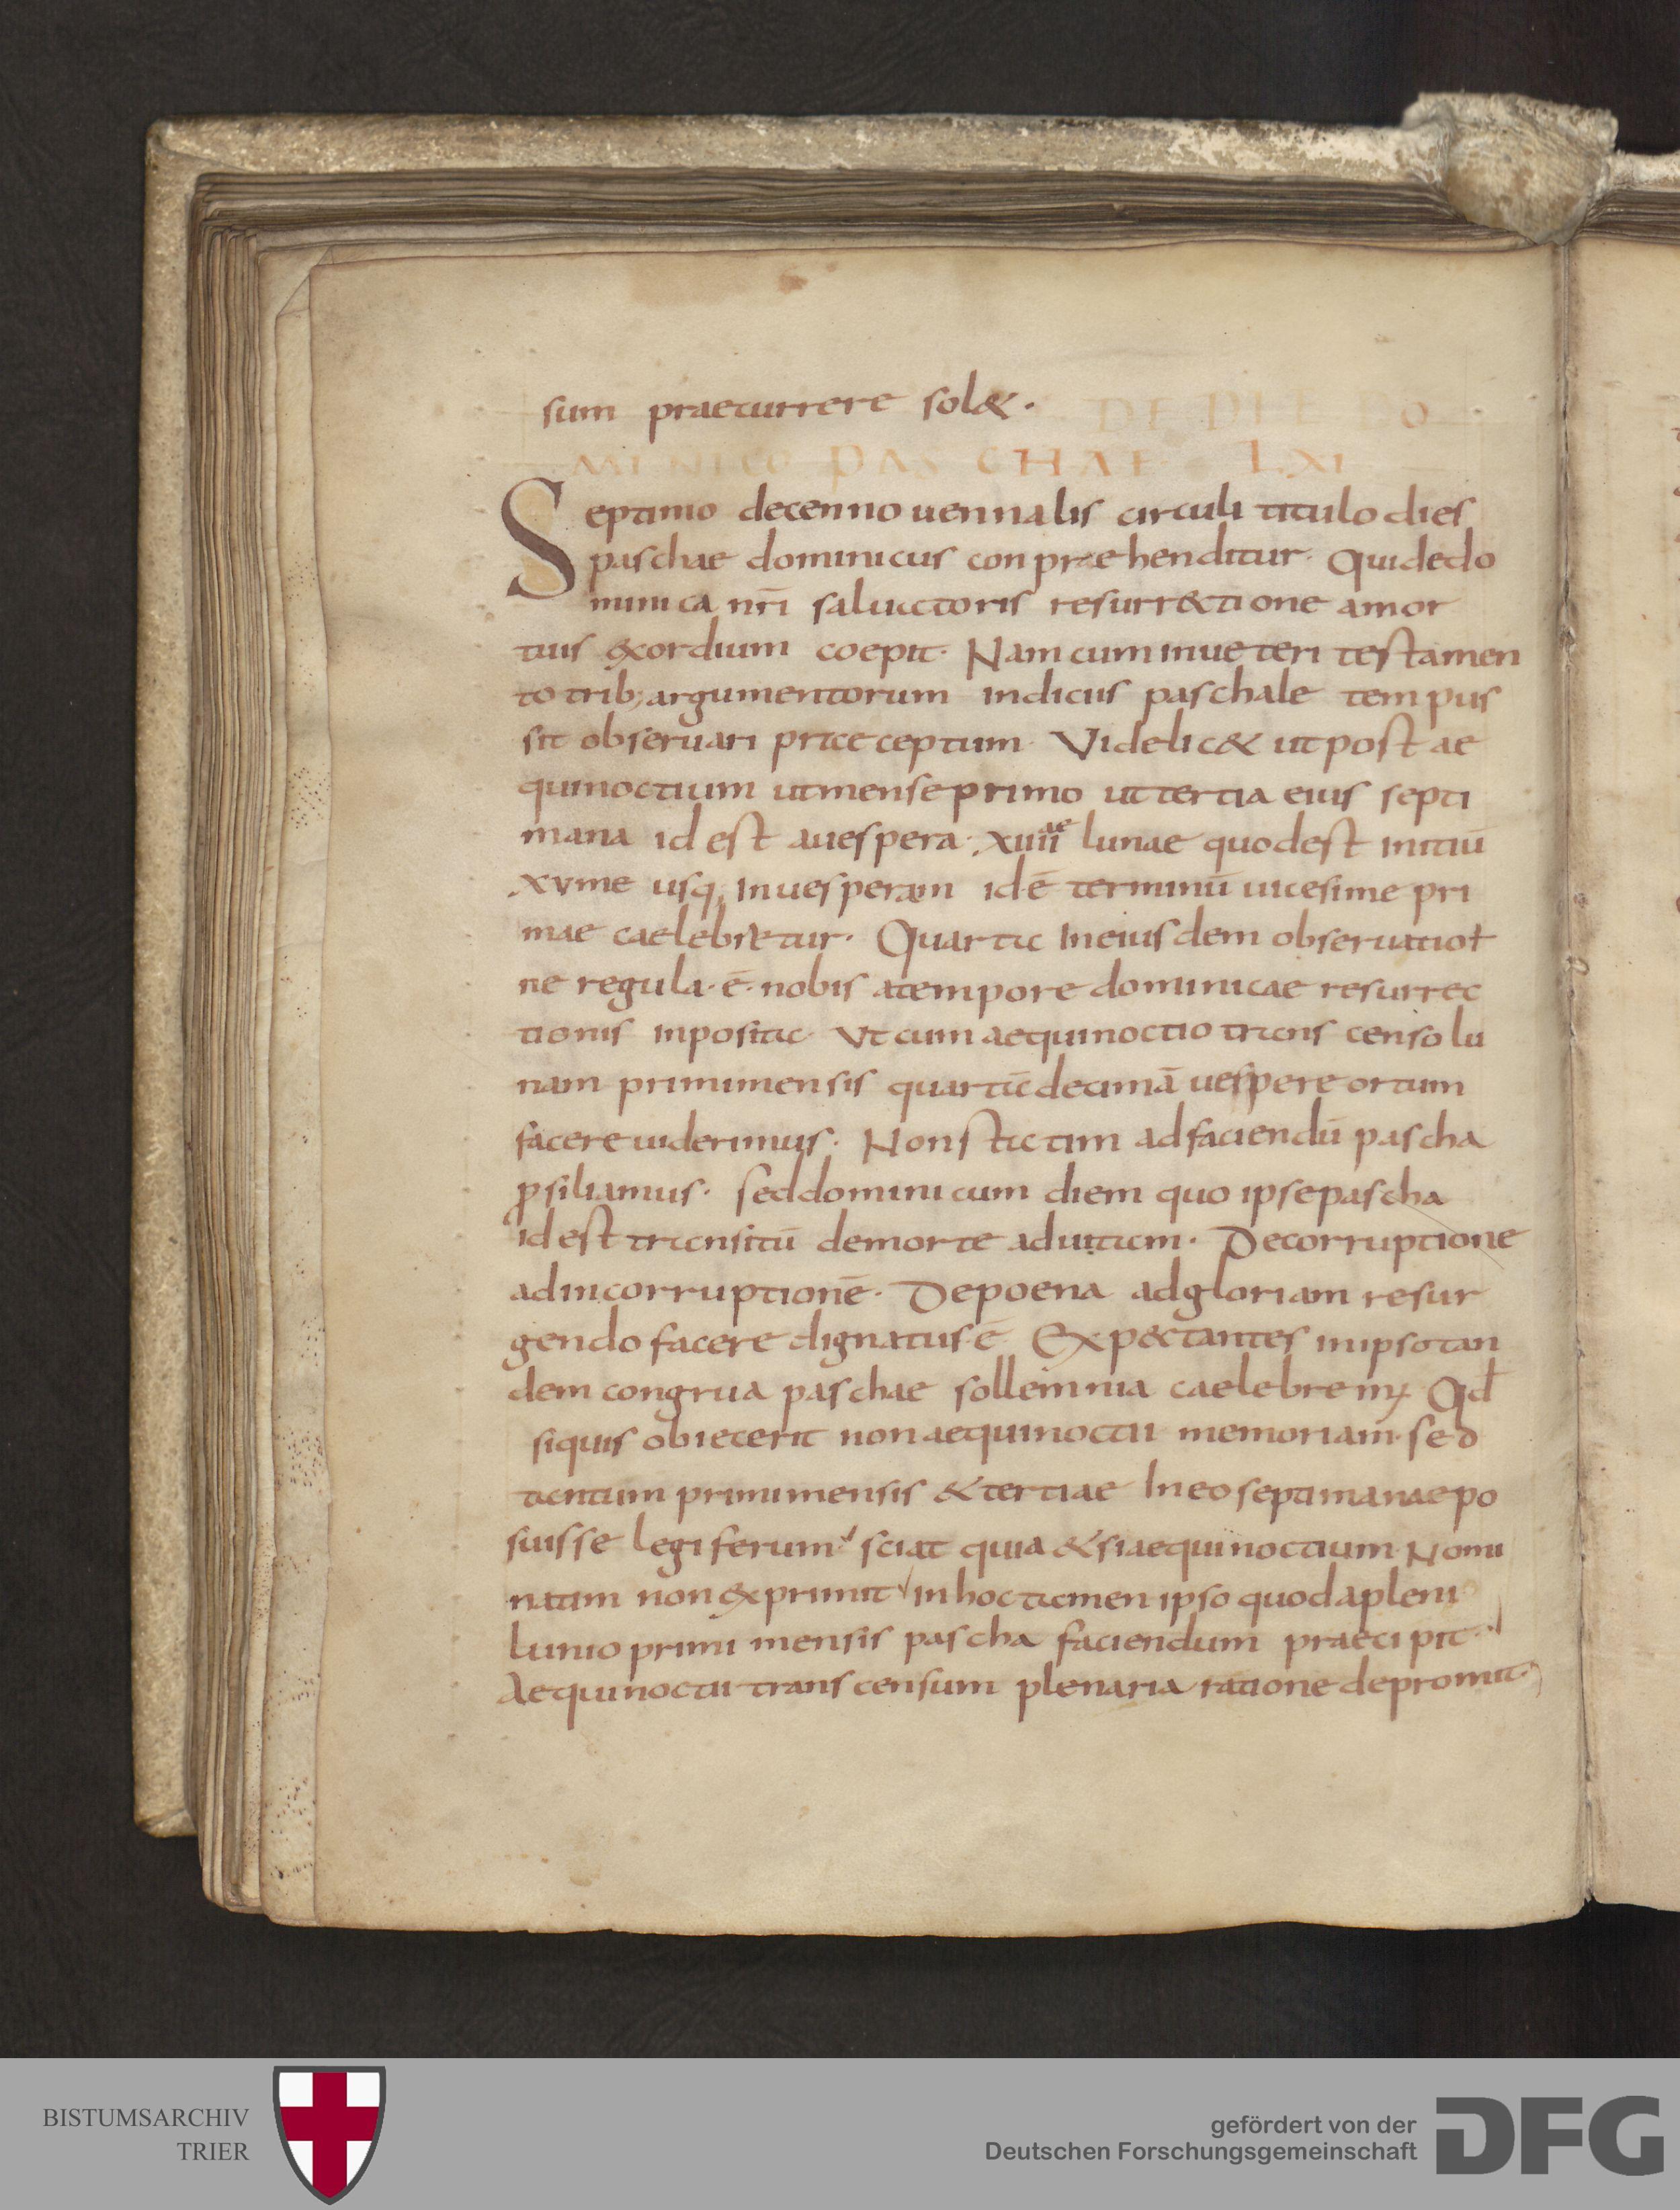 sum praecurrere sol&.
DE DIE DO
MINICO PASCHAE LXI
Septimo decenno uennalis circuli titulo dies
paschae dominicus conpraehenditur. Qui dedo
minica nr̄i saluatoris resurr&tione a mor
tuis &cordium coepit. Nam cum inueteri testamen
to trib; argumentorum indiciis paschale tempus
sit obseruari praeceptum. Videlic& ut post ae
quinoctium ut mense primo ut tertia eius septi
mana id est auespera .xiiii ae lunae quod est initiū
.xvme usq; inuesperam id ē terminū uicesime pri
mae caelebretur. Quarta In eiusdem obseruatiot
ne regula. ē. nobis atempore dominicae resurrec
tionis inposita. Vt cum aequinoctio transcenso lu
nam primi mensis quartadecimā uespere ortum
facere uiderimus. Non statim adfaciendū pascha
ꝓsiliamus. sed dominicum diem quo ipse pascha
id est transitū demorte aduitam. Decorruptione
adincorruptionē. Depoena adgloriam resur
gendo facere dignatus ē Exp&tantes inipso tan
dem congrua paschae sollemnia caelebrem; Qd̄
siquis obiecerit non aequinoctii memoriam. sed
tantum primi mensis & tertiae In eo septimanae po
suisse legiferum. sciat quia & si aequinoctium. Nomi
natim non &primit in hoc tamen ipso quod apleni
lunio primi mensis pascha faciendum praecipit.
Aequinoctii transcensum plenaria ratione depromit.
BISTUMSARCHIV
TRIER
gefördert von der
Deutschen Forschungsgemeinschaft
DFG